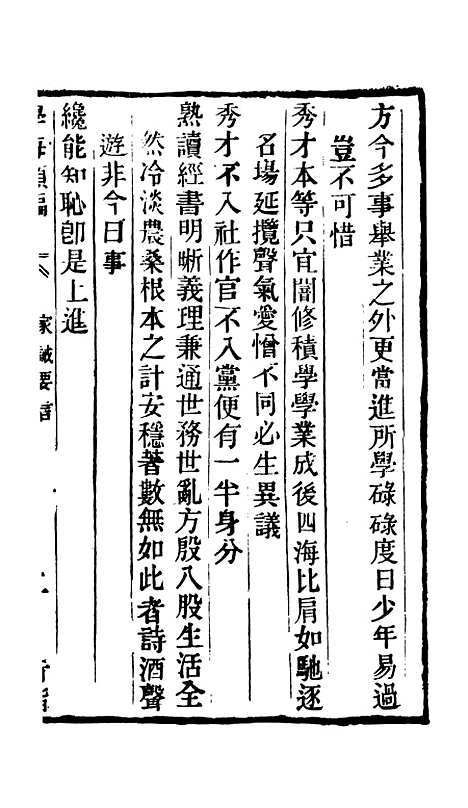 方今多事舉業之外更當進所學碌碌度日少年易過
豈不可惜
秀才本等只宜闇修積學學業成後四海比肩如馳逐
名場延攬聲氣愛憎不同必生異議
秀才不入社作官不入黨便有一半身分
熟讀經書明晰義理兼通世務世亂方殷八股生活全
然冷淡農桑根本之計安穩著數無如此者詩酒聲
遊非今日事
纔能知恥卽是上進
學海類編
家誡要言